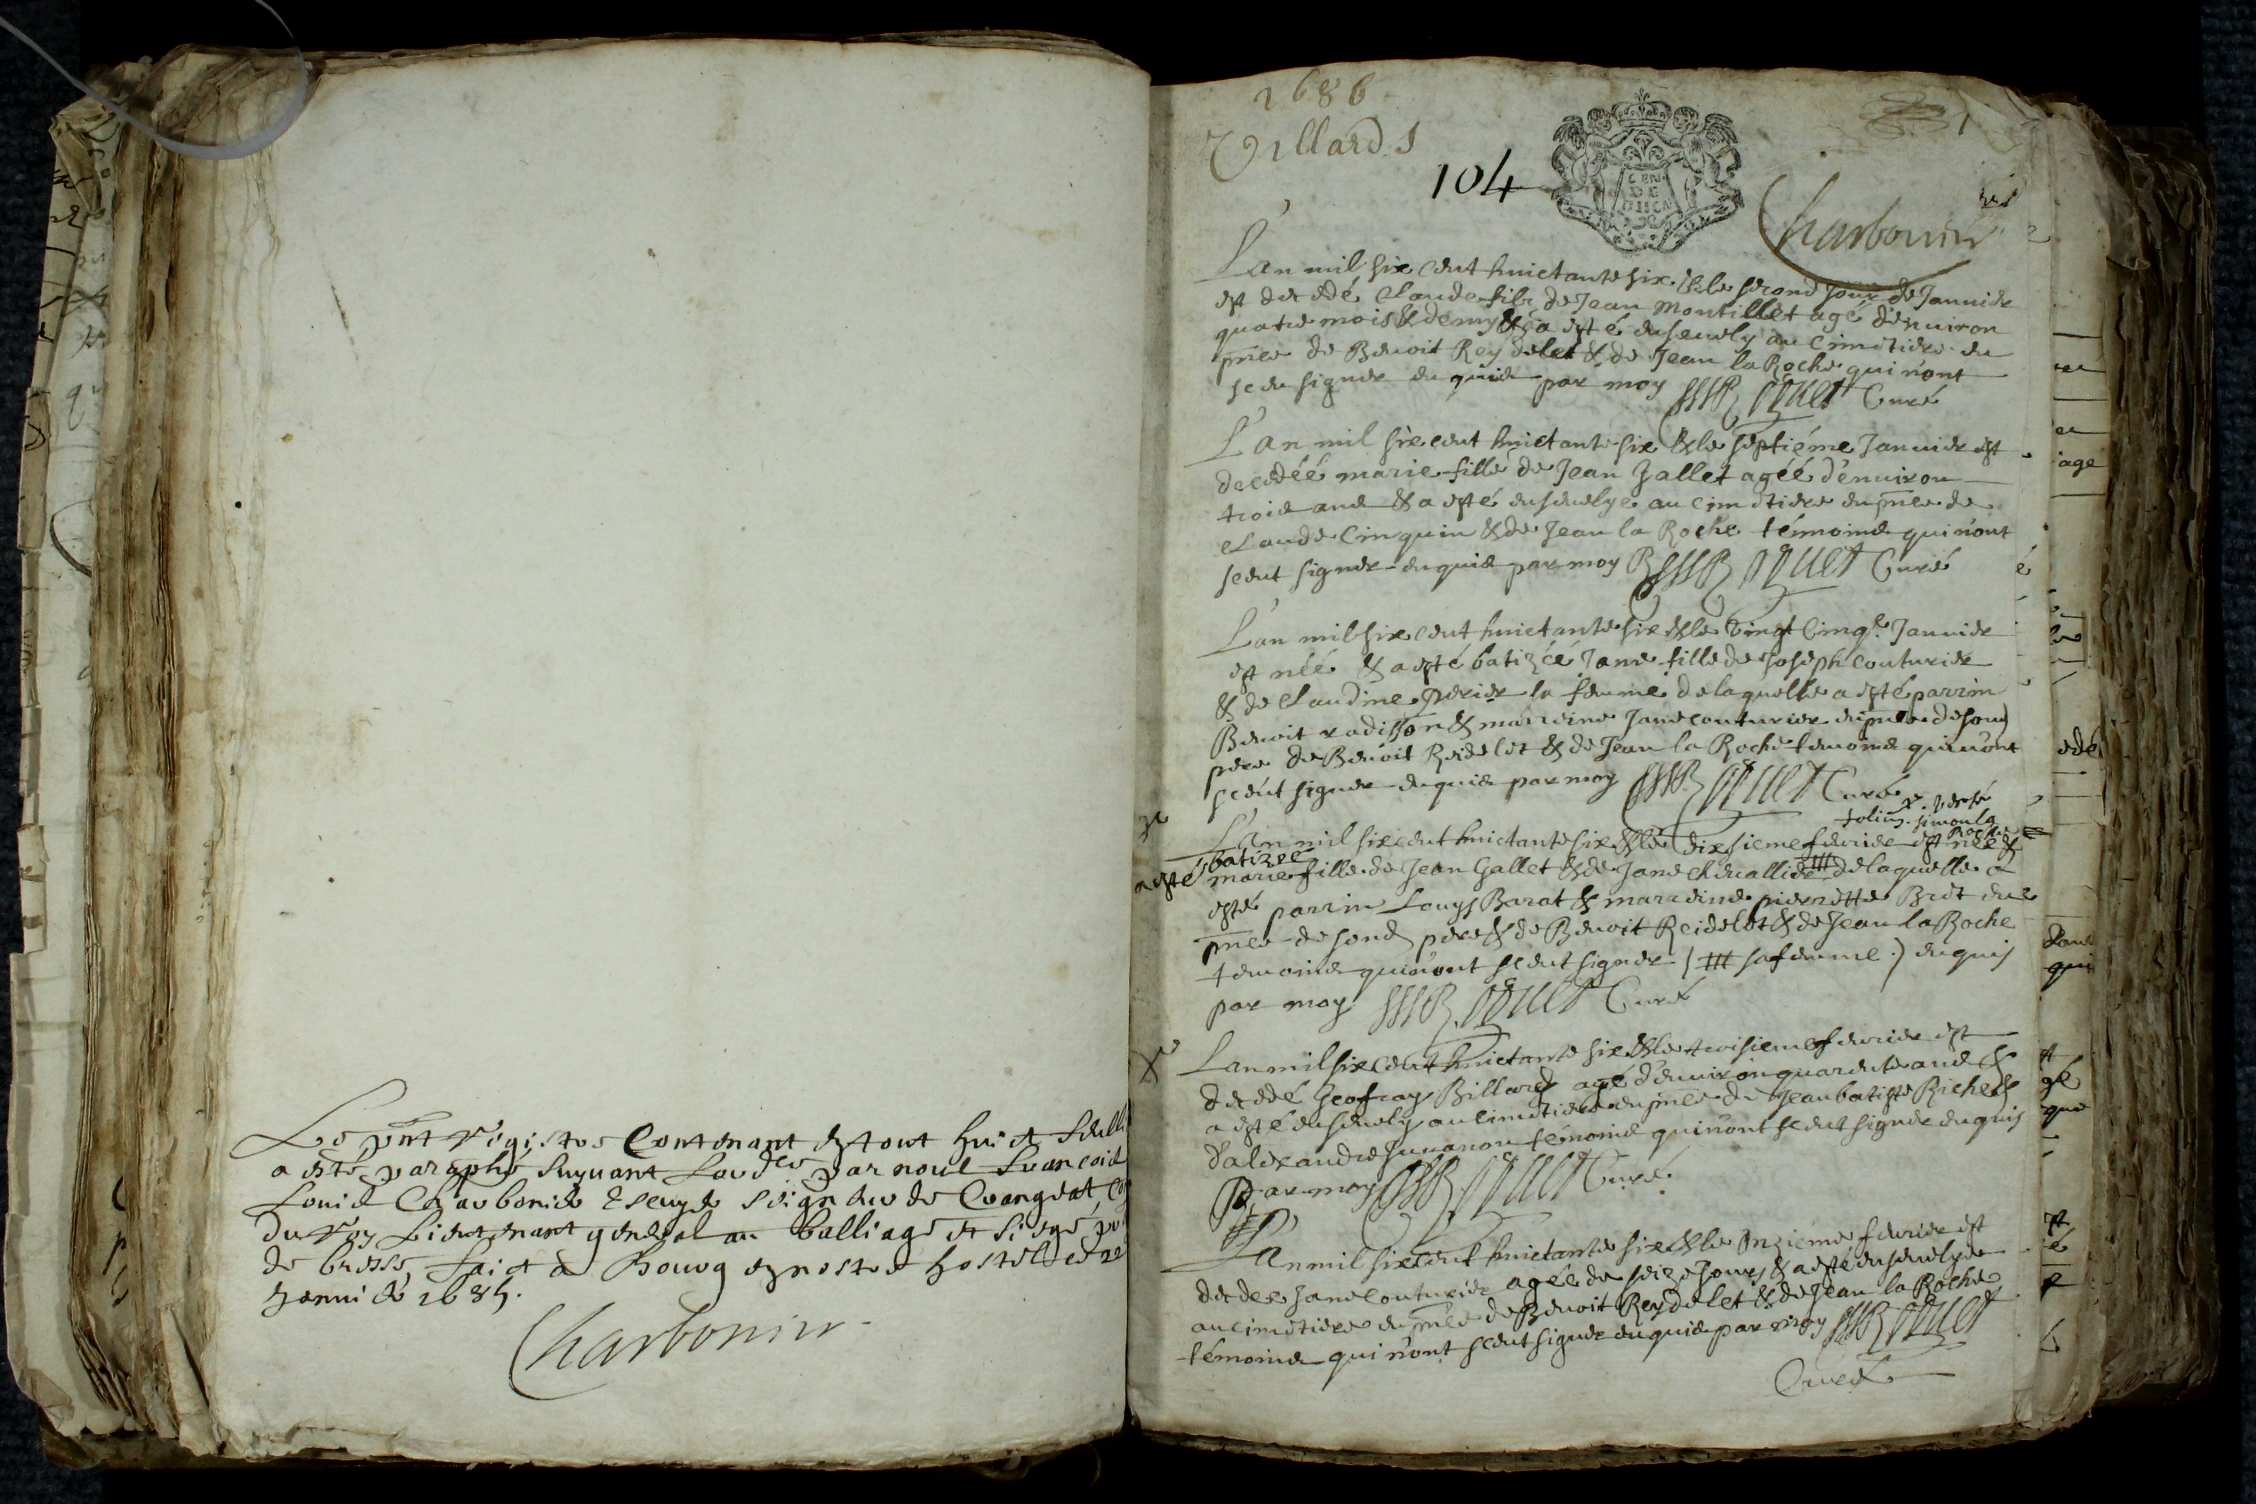 Le pnt registre Contenant en tout huict feuill
a esté paraphé suyuant Lordce par nous francois
Louis Charbonier Escuyer seigneur de Crangeat, co
du roy Lieutenant general au balliage et siege p
de bresse, faict à Bourg en nostre hostel ce
januier 1685.
Charbonier
1686
Villards
104
GEN
DE
Charbonier
L'an mil six cent huictante six & le second jour de Januier
est decedé Claude fils de Jean Montillet agé d'enuiron
quatre mois & demy & a esté enseuely au cimetiere en
pnce de Benoit Reydelet & de Jean la Roche qui n'ont
sceu signer enquis par moy Curé
L'an mil six cent huictante six & le septiéme Januier est
decedéé marie fille de Jean Gallet agéé d'enuiron
trois ans & a esté enseuelye au cimetiere en pnce de
Claude Cinquin & de Jean la Roche témoins qui n'ont
sceut signer enquis par moy Curé
L'an mil six cent huictante six & le vingt cinq.e Januier
est néé & a esté batizéé Jane fille de Joseph couturier
& de Claudine perier sa femme de laquelle a esté parrin
Benoit radisson & marreine Jane couturier en pnce de sond
pere de Benoit Reidelet & de Jean la Roche temoins qui n'ont
sceut signer enquis par moy Curé
L'an mil six cent huictante six & le dixsieme feurier est néé &
a esté batizée
marie fille de Jean Gallet & de Jane cheuallier de laquelle a
esté parrin Louys Barat & marreine pierrette Bret en
pnce de sond pere & de Benoit Reidelet & de Jean la Roche
temoins qui n'ont sceut signer ( sa femme.) enquis
par moy Curé
L'an mil six cent huictante six & le troisieme feurier est
decedé Geofray Billard agé d'enuiron quarente ans &
a esté enseuely au cimetiere en pnce de Jean batiste Riche &
d'alexandre Juuanon témoins qui n'ont sceut signer enquis
Par moy Curé
L'an mil six cent huictante six & le onziéme feurier est
decedee Jane Couturier agéé de seize Jours & a esté enseuelye
au cimetiere en pnce de Benoit Reydelet & de Jean la Roche
témoins qui n'ont sceut signer enquis par moy
Curé